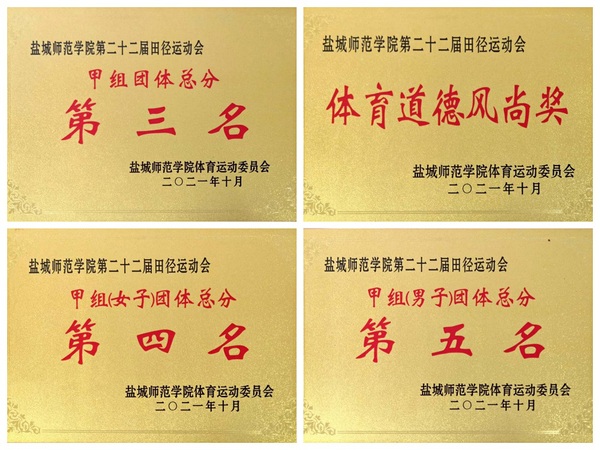 盐城师范学院第二十二届田径运动会
甲组团体总分
第三名
盐城师范学院体育运动委员会
二〇二一年十月
盐城师范学院第二十二届田径运动会
体育道德风尚奖
盐城师范学院体育运动委员会
二〇二一年十月
盐城师范学院第二十二届田径运动会
甲组(女子)团体总分
第四名
盐城师范学院体育运动委员会
二〇二一年十月
盐城师范学院第二十二届田径运动会
甲组(男子)团体总分
第五名
盐城师范学院体育运动委员会
二〇二一年十月